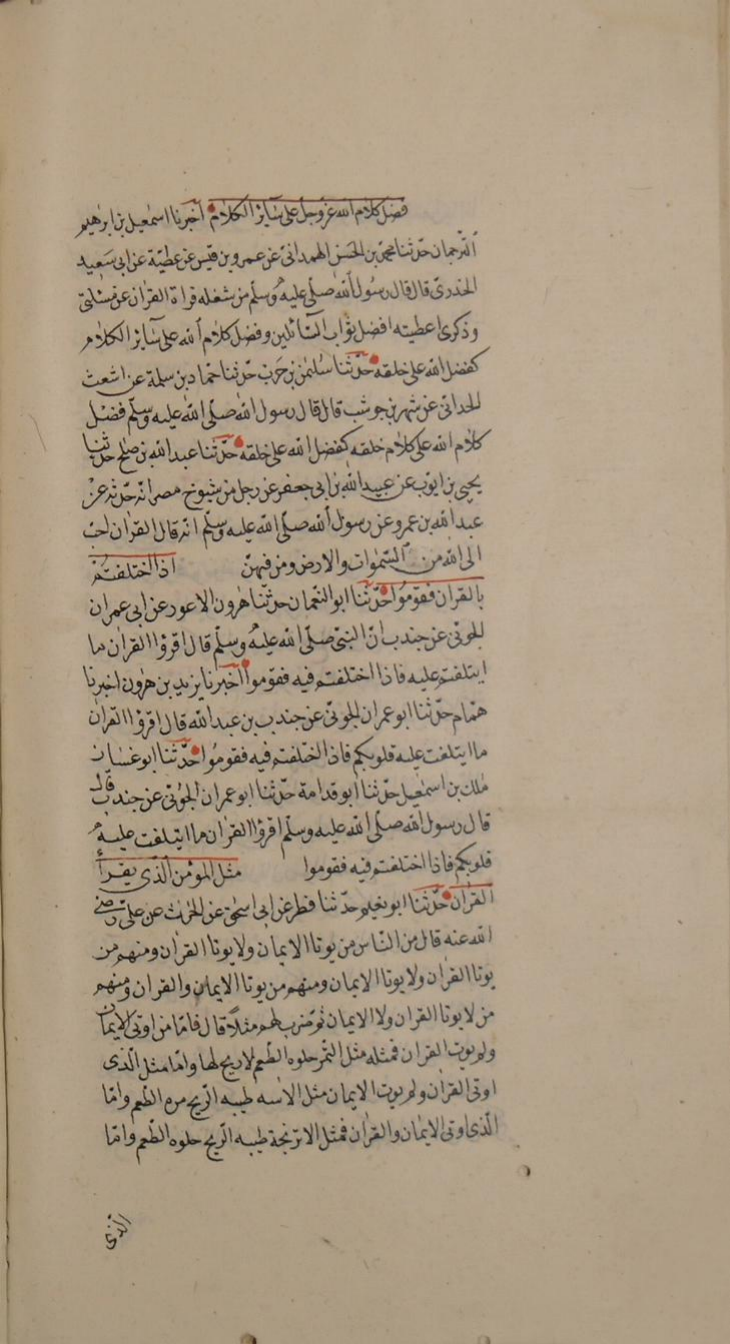 فضل كلام الله عز وجل على سائر الكلام اخبرنا اسمعيل بن ابرهيم
الترجمان حدثنا محمد بن الحسن الهمدانى عن عمرو بن قيس عن عطية عن ابى سعيد
الخدرى قال قال رسول الله صلى عليه وسلم من شغله قراة القران عن مسئلتى
وذكرى اعطيته افضل ثواب السائلين وفضل كلام الله على سائر الكلام
كفضل الله على خلقه حدثنا سليمن بن حرب حدثنا حماد بن سلمة عن اشعث
الحدانى عن شهر بن حوشب قال قال رسول الله صلى الله عليه وسلم فضل
كلام الله على كلام خلقه كفضل الله على خلقه حدثنا عبد الله بن صلح حدثنا
يحيى بن ايوب عن عبيد الله بن ابى جعفر عن رجل من شيوخ مصر انه حدثه عن
عبد الله بن عمرو عن رسول الله صلى الله عليه وسلم انه قال القران احب
الى الله من السموات والارض ومن فيهن اذا اختلفتم
بالقران فقوموا حدثنا ابو النعمان حدثنا هرون الاعور عن ابى عمران
الجونى عن جندب ان النبى صلى الله عليه وسلم قال اقرؤا القران ما
ايتلفتم عليه فاذا اختلفتم فيه فقوموا اخبرنا يزيد بن هرون اخبرنا
همام حدثنا ابو عمران الجونى عن جندب بن عبد الله قال اقرؤا القران
ما ايتلفت عليه قلوبكم فاذا اختلفتم فيه فقوموا حدثنا ابو غسان
ملك بن اسمعيل حدثنا ابو قدامة حدثنا ابو عمران الجونى عن جندب قال
قال رسول الله صلى الله عليه وسلم اقرؤا القران ما ايتلفت عليه
قلوبكم فاذا اختلفتم فيه فقوموا مثل المؤمن الذى يقرأ
القران حدثنا ابو نعيم حدثنا فطر عن ابى اسحق عن الحرث عن على رضى
الله عنه قال من الناس من يوتا الايمان ولا يوتا القران ومنهم من
يوتا القران ولا يوتا الايمان ومنهم من يوتا الايمان والقران ومنهم
من لا يوتا القران ولا الايمان ثم ضرب لهم مثلا قال فاما من اوتى الايمان
ولم يوت القران فمثله مثل التمر حلوه الطعم لا ريح لها واما مثل الذى
اوتى القران ولم يوت الايمان مثل الاسه طيبه الريح مره الطعم واما
الذى اوتى الايمان والقران فمثل الاترنجة طيبه الريح حلوه الطعم واما
الذى